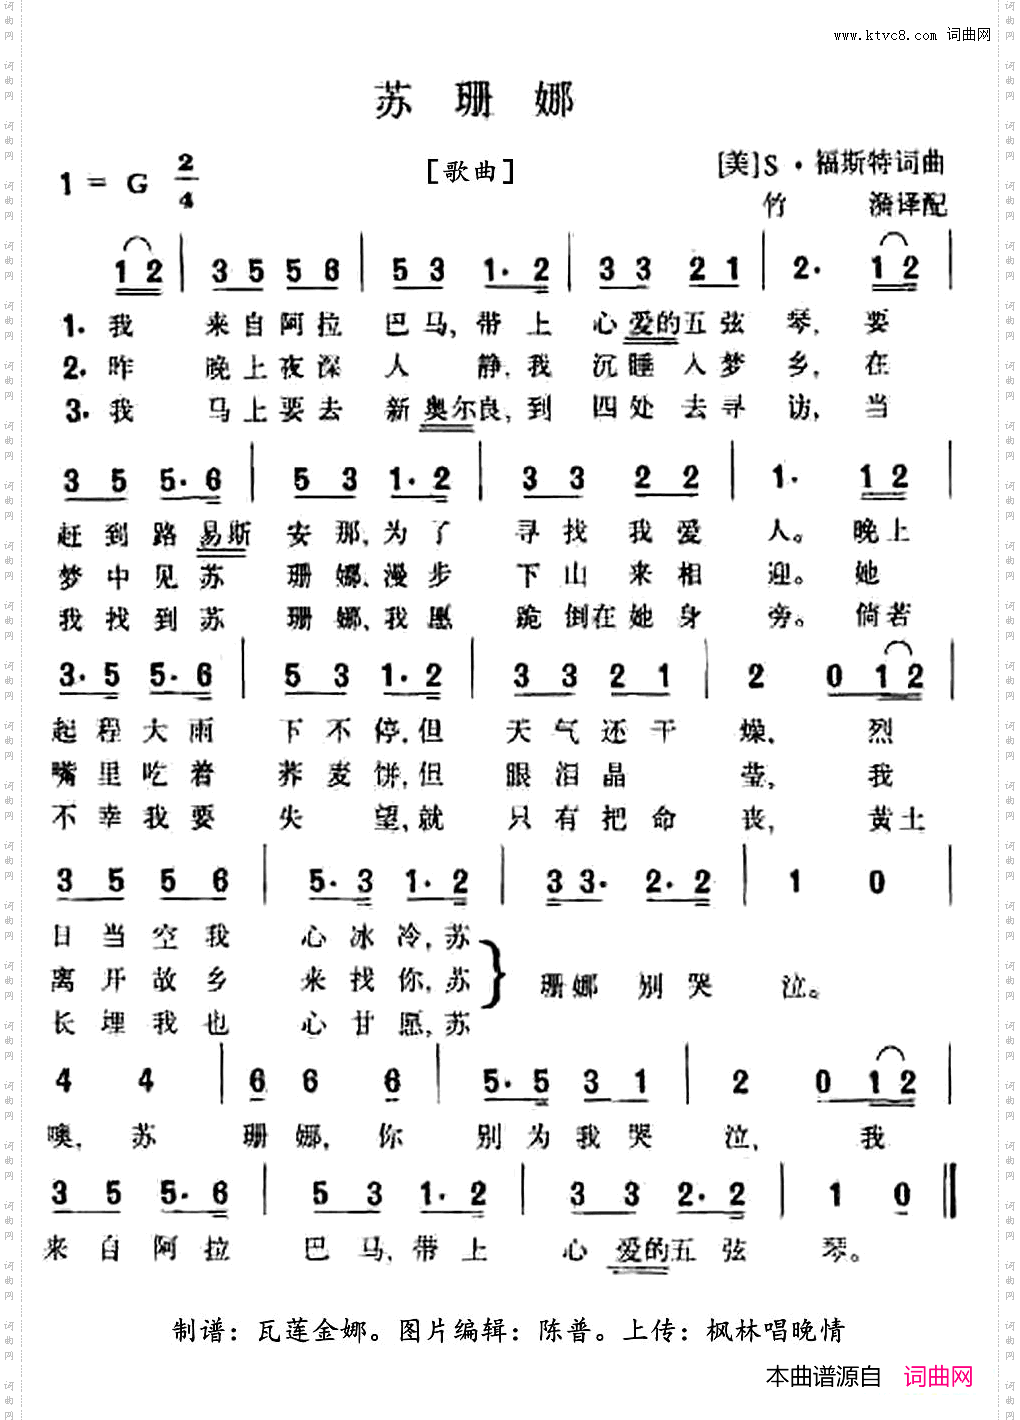 www.ktvc8.com 词曲网
苏珊娜
1 = G 2/4 [歌曲] [美]S·福斯特词曲
竹 漪译配
1 2 | 3 5 5 6 | 5 3 1· 2 | 3 3 2 1 | 2· 1 2 |
1. 我 来自阿拉 巴马,带上 心爱的五弦 琴,要
2. 昨 晚上夜深 人 静,我 沉睡入梦 乡,在
3. 我 马上要去 新奥尔良,到 四处去寻 访,当
3 5 5· 6 | 5 3 1· 2 | 3 3 2 2 | 1· 1 2 |
赶到路易斯 安那,为了 寻找我爱 人。晚上
梦中见苏 珊娜,漫步 下山来相 迎。她
我找到苏 珊娜,我愿 跪倒在她身 旁。倘若
3· 5 5· 6 | 5 3 1· 2 | 3 3 2 1 | 2 0 1 2 |
起程大雨 下不停,但 天气还干 燥, 烈
嘴里吃着 荞麦饼,但 眼泪晶 莹, 我
不幸我要 失 望,就 只有把命 丧, 黄土
3 5 5 6 | 5· 3 1· 2 | 3 3· 2· 2 | 1 0 |
日当空我 心冰冷,苏
离开故乡 来找你,苏 } 珊娜 别哭 泣。
长埋我也 心甘愿,苏
4 4 | 6 6 6 | 5· 5 3 1 | 2 0 1 2 |
噢, 苏 珊娜,你 别为我哭 泣, 我
3 5 5· 6 | 5 3 1· 2 | 3 3 2· 2 | 1 0 ‖
来自阿拉 巴马,带上 心爱的五弦 琴。
制谱：瓦莲金娜。图片编辑：陈普。上传：枫林唱晚情
本曲谱源自 词曲网